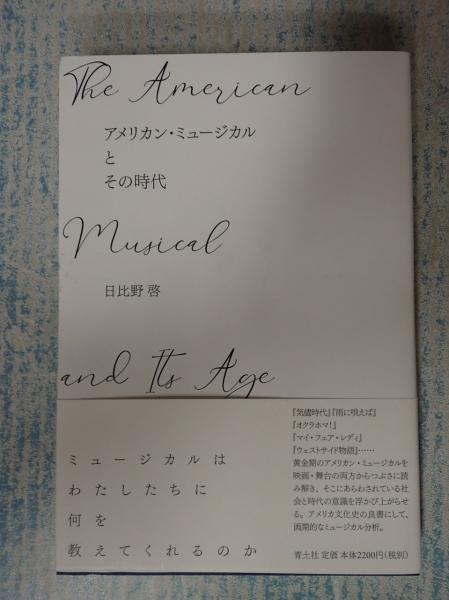 The American
アメリカン・ミュージカル
と
その時代
Musical
日比野 啓
and Its Age
ミュージカルは
わたしたちに
何を
教えてくれるのか
『気儘時代』『雨に唄えば』
『オクラホマ!』
『マイ・フェア・レディ』
『ウェストサイド物語』……
黄金期のアメリカン・ミュージカルを
映画・舞台の両方からつぶさに読
み解き、そこにあらわされている社
会と時代の意識を浮かび上がらせ
る。アメリカ文化史の良書にして、
画期的なミュージカル分析。
青土社 定価 本体2200円(税別)